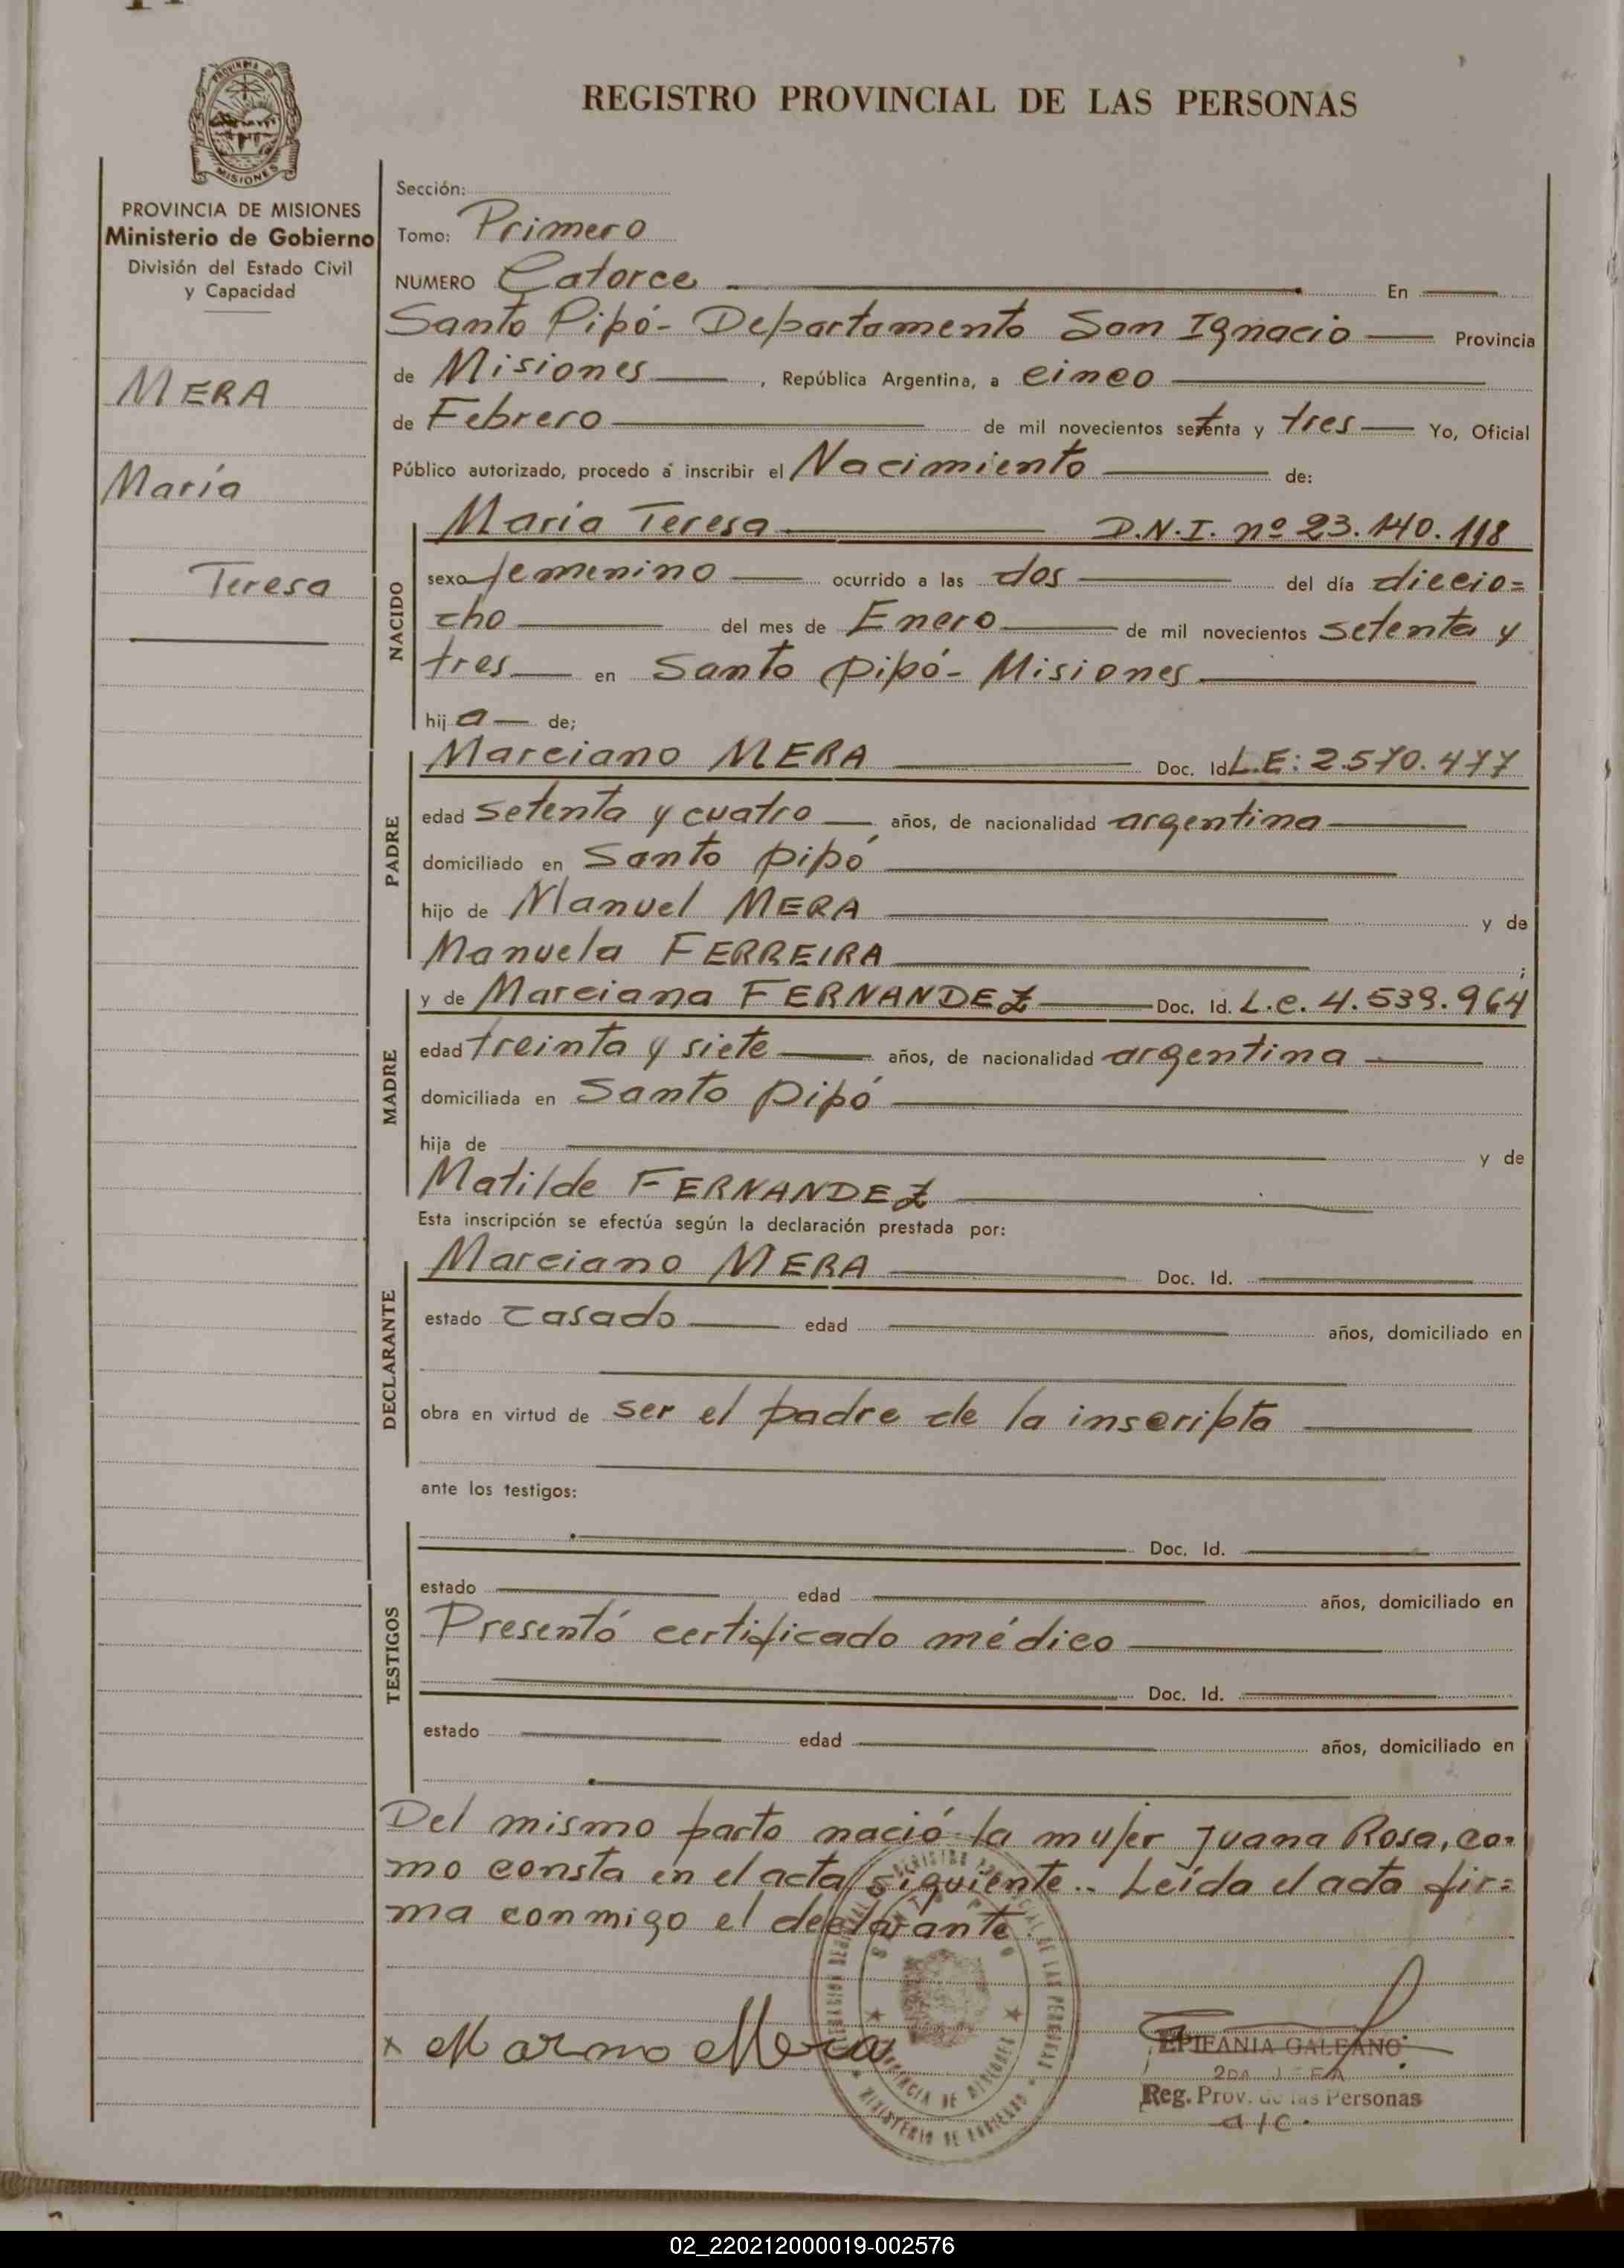 REGISTRO PROVINCIAL DE LAS PERSONAS
PROVINCIA DE MISIONES
MISIONES
PROVINCIA DE MISIONES
Ministerio de Gobierno
División del Estado Civil
y Capacidad
MERA
María
Teresa
Sección:
Tomo: Primero
NUMERO Catorce En
Santo Pipó - Departamento San Ignacio Provincia
de Misiones, República Argentina, a cinco
de Febrero de mil novecientos setenta y tres Yo, Oficial
Público autorizado, procedo a inscribir el Nacimiento de:
NACIDO
María Teresa D.N.I. nº 23.140.118
sexo femenino ocurrido a las dos del día diecio=
cho del mes de Enero de mil novecientos setenta y
tres en Santo Pipó - Misiones
hija de;
PADRE
Marciano MERA Doc. Id. L.E: 2.570.477
edad setenta y cuatro años, de nacionalidad argentina
domiciliado en Santo Pipó
hijo de Manuel MERA y de
Manuela FERREIRA ;
MADRE
y de Marciana FERNANDEZ Doc. Id. L.C. 4.539.964
edad treinta y siete años, de nacionalidad argentina
domiciliada en Santo Pipó
hija de y de
Matilde FERNANDEZ
Esta inscripción se efectúa según la declaración prestada por:
DECLARANTE
Marciano MERA Doc. Id.
estado casado edad años, domiciliado en
obra en virtud de ser el padre de la inscripta
ante los testigos:
TESTIGOS
Doc. Id.
estado edad años, domiciliado en
Presentó certificado médico
Doc. Id.
estado edad años, domiciliado en
Del mismo parto nació la mujer Juana Rosa, co=
mo consta en el acta siguiente.. Leída el acta fir=
ma conmigo el declarante.
x Marno Mera
EPIFANIA GALEANO
2DA JEFA
Reg. Prov. de las Personas
a/c.
PROVINCIA DE MISIONES
MINISTERIO DE GOBIERNO
02_220212000019-002576